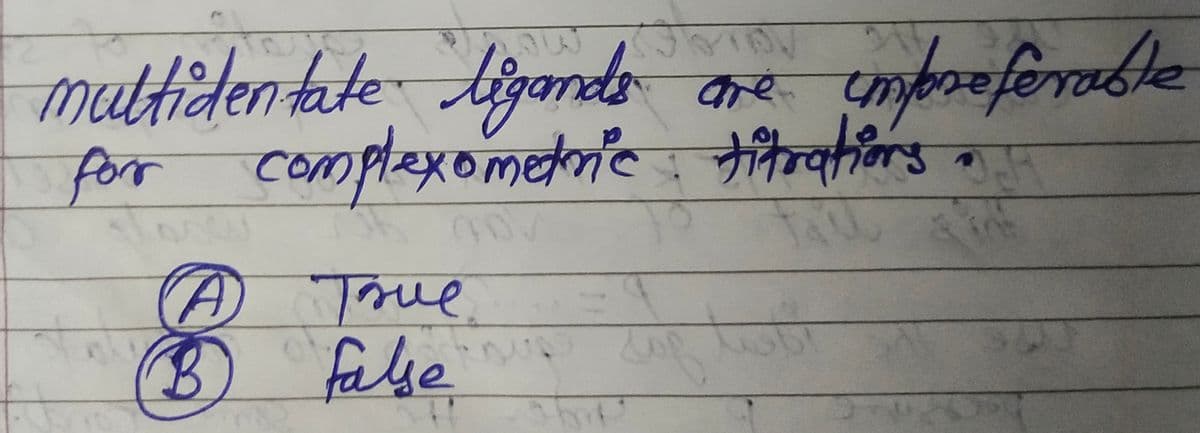 multidentate ligands are impreferable
for complexometric titrations.
A True
B false